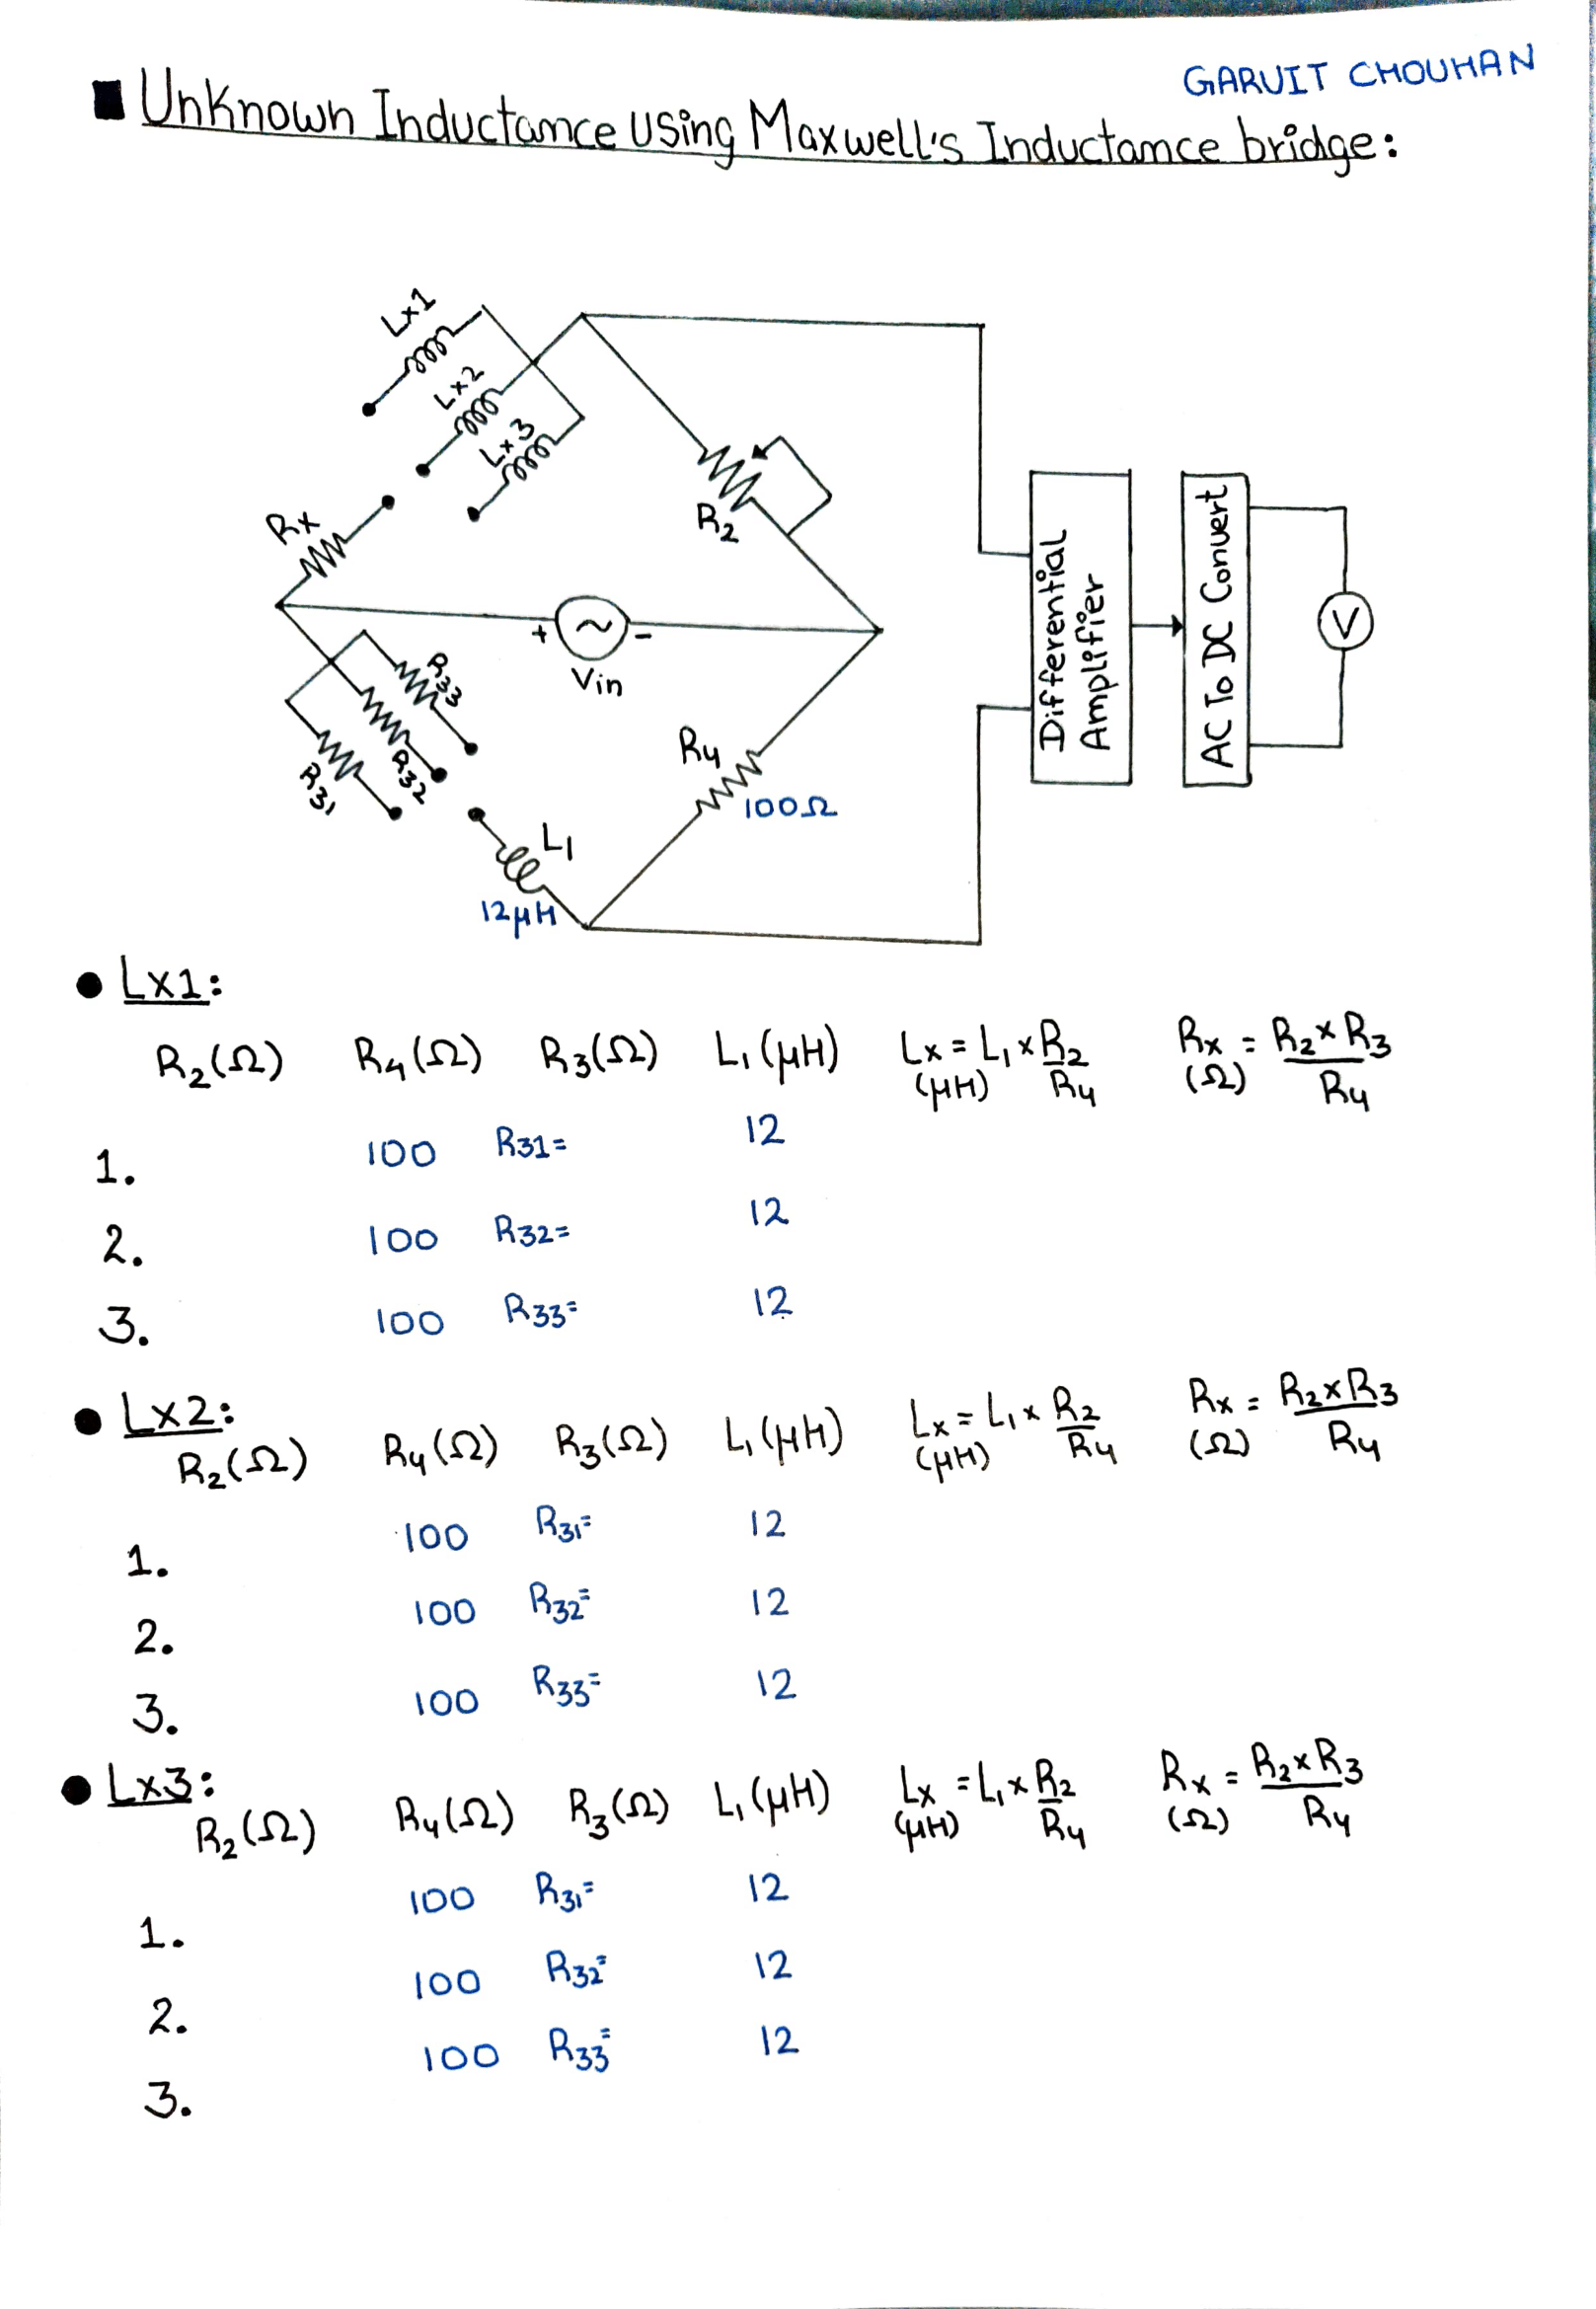 GARVIT CHOUHAN
Unknown Inductance Using Maxwell's Inductance bridge:
Lx1
Lx2
Lx3
Rx
R2
+ ~ -
Vin
R33
R32
R31
R4
100Ω
L1
12μH
Differential Amplifier
AC To DC Convert
V
Lx1:
R2(Ω) R4(Ω) R3(Ω) L1(μH) Lx(μH) = L1 x R2/R4 Rx(Ω) = R2 x R3/R4
1. 100 R31= 12
2. 100 R32= 12
3. 100 R33= 12
Lx2:
R2(Ω) R4(Ω) R3(Ω) L1(μH) Lx(μH) = L1 x R2/R4 Rx(Ω) = R2 x R3/R4
1. 100 R31= 12
2. 100 R32= 12
3. 100 R33= 12
Lx3:
R2(Ω) R4(Ω) R3(Ω) L1(μH) Lx(μH) = L1 x R2/R4 Rx(Ω) = R2 x R3/R4
1. 100 R31= 12
2. 100 R32= 12
3. 100 R33= 12